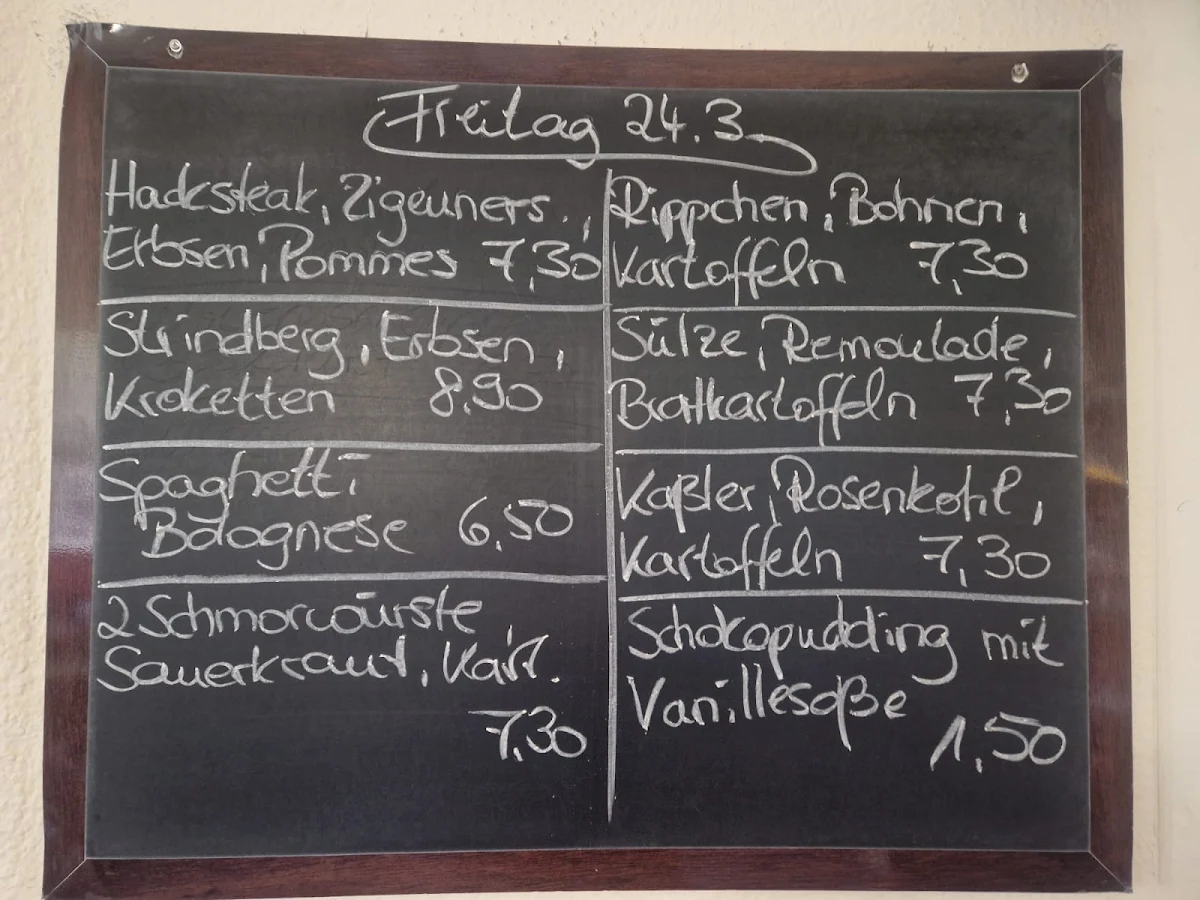 Freitag 24.3
Hacksteak, Zigeuners.,
Erbsen, Pommes 7,30
Strindberg, Erbsen,
Kroketten 8,90
Spaghetti
Bolognese 6,50
2 Schmorwürste
Sauerkraut, Kart.
7,30
Rippchen, Bohnen,
Kartoffeln 7,30
Sülze, Remoulade,
Bratkartoffeln 7,30
Kaßler, Rosenkohl,
Kartoffeln 7,30
Schokopudding mit
Vanillesoße
1,50